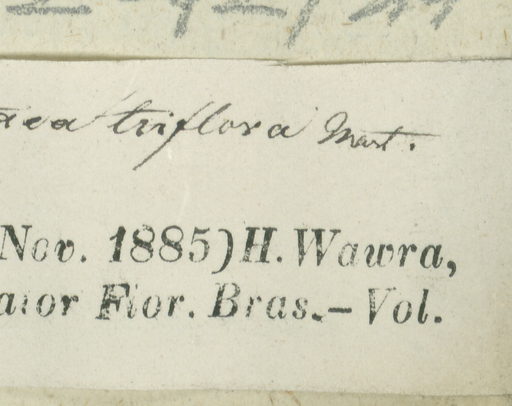 triflora Mart.
Nov. 1885) H. Wawra,
ator Flor. Bras. – Vol.